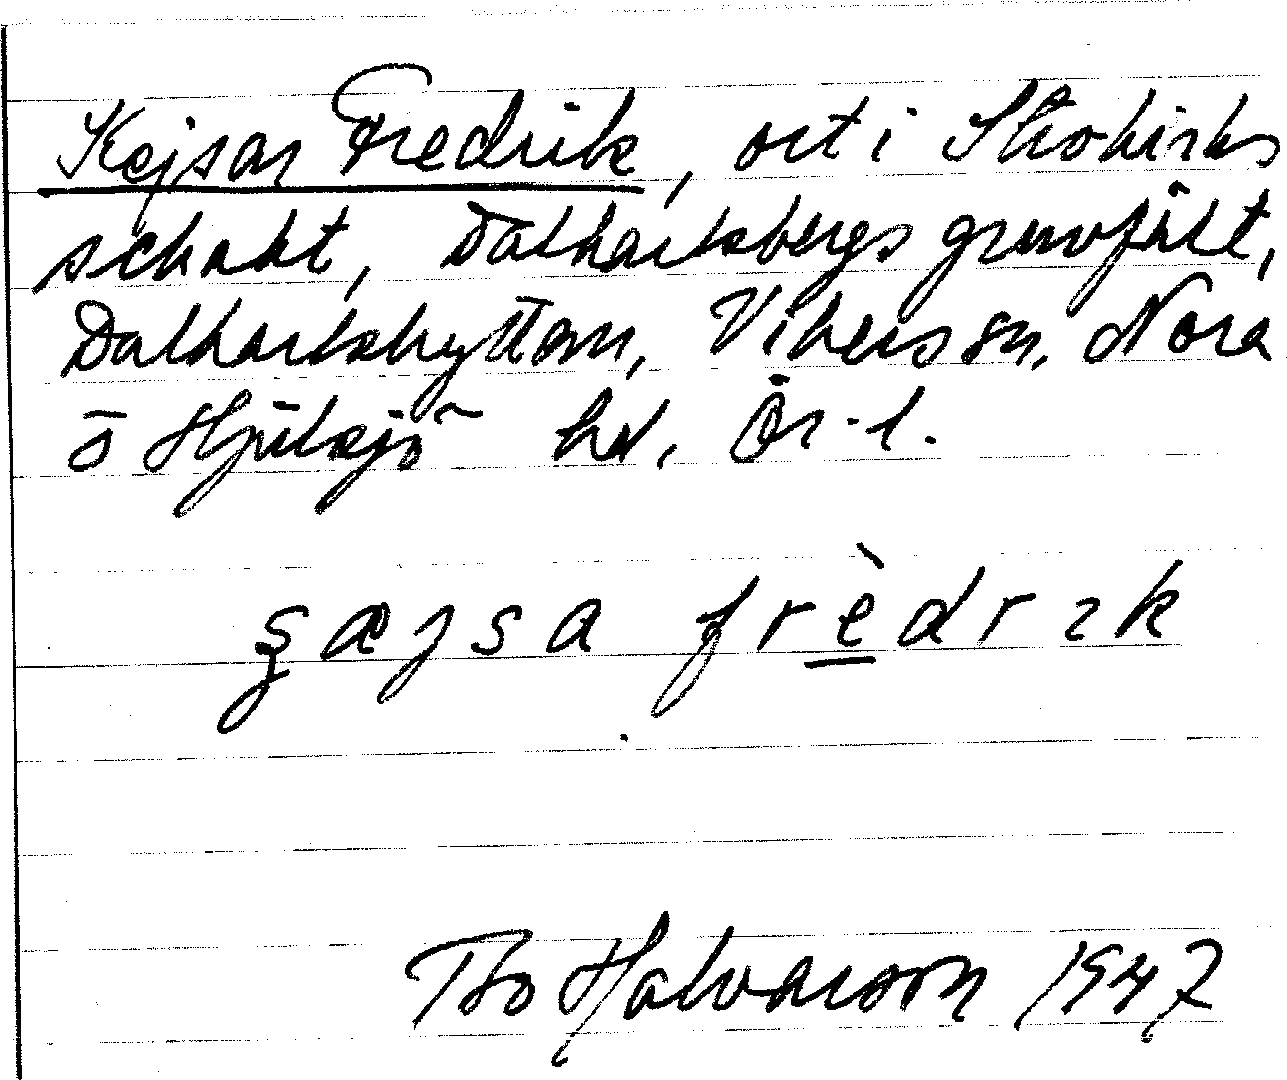 Kejsar Fredrik, ort i Stokirks
schakt, Dalkarlsbergs gruvfält,
Dalkarlshyttan, Vikers sn, Nora
o Hjulsjö hd, Ör. l.
frèdrık
Halvarson 1947